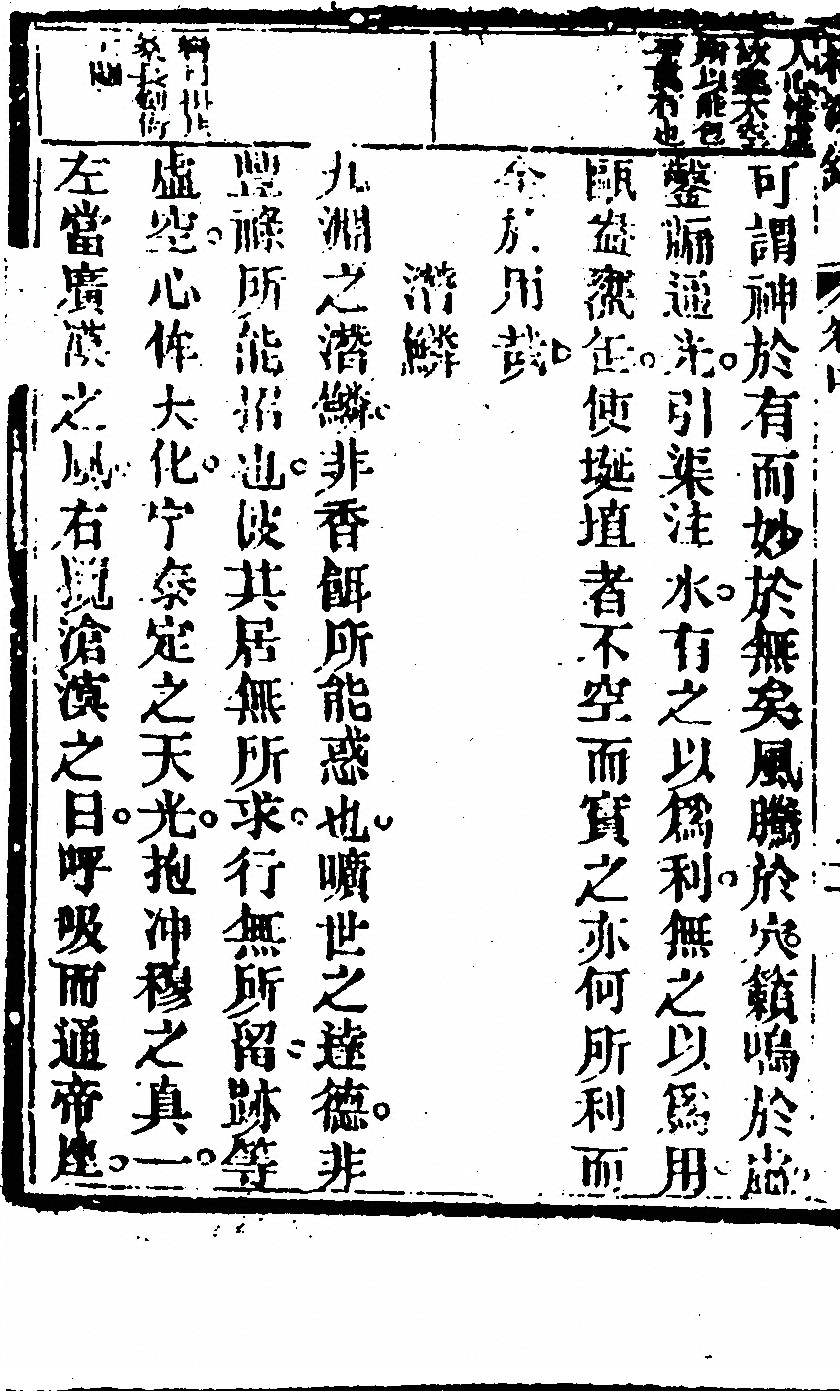 人心惟虛
故靈太空
所以能包
可謂神於有而妙於無矣風騰於穴籟鳴於嵒
鑿牖通光引渠注水有之以爲利無之以爲用
甌
使埏埴者不空而實之亦何所利而
全於用哉
潛鱗
九淵之潛鱗非香餌所能惑也曠世之逹德非
豐祿所能招也彼其居無所求行無所留跡等
虛空心侔大化宁泰定之天光抱冲穆之真一
左當廣漠之風右
滄溟之日呼吸而通帝座